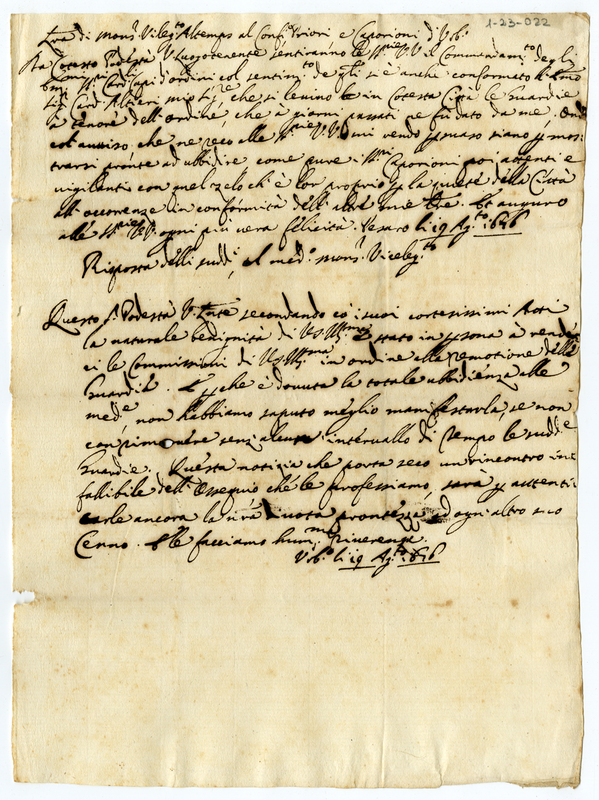 1-23-022
Lra di Mons.r Viceleg.to Altemps al Conf.e Priori e Caporioni d'Urb.o
Da Cotesto Podestà e Luogotenente sentiranno le SS.rie VV il Commandam.to degli
Em.mi SS.ri Card.li capi d'ordini col sentim.to de q.li si è anche conformato l'Em.o
Sig.r Card. Altieri mio Sig.re, che si levino in Cotesta Città le Guardie
à tenore dell'ordine che à giorni passati ne fù dato da me. Onde
col avviso che ne reco alle SS.rie VV. mi rendo persuaso siano per mos-
trarsi pronte ad ubbidire come pure i SS.ri Caporioni poi attenti e
vigilanti con quel zelo ch'è lor proprio per la quiete della Città
all'occorrenze in conformità dell'altre mie lre. Et auguro
alle SS.rie VV. ogni più vera felicità. Pesaro li 19 Ag.to 1676
Risposta delli sudd.i al med.o Mons.r Viceleg.to
Questo S.r Podestà secondando có i suoi cortesissimi Atti
la naturale benignità di VS. Ill.ma è stato in persona à render-
ci le Commissioni di VS. Ill.ma in ordine alla remotione delle
Guardie. E perche è dovuta la totale ubbidienza alle
med.e, non habbiamo saputo meglio manifestarla, se non
con rimovere senz'alcuno intervallo di tempo le sudd.e
Guardie. Questa notizia che porta seco un rincontro in-
fallibile dell'Ossequio che le professiamo, sarà per autenti-
carle ancora la nra divota prontezza ad ogni altro suo
Cenno. E le facciamo hum.ma riverenza.
Urb.o li 19 Ag.to 1676